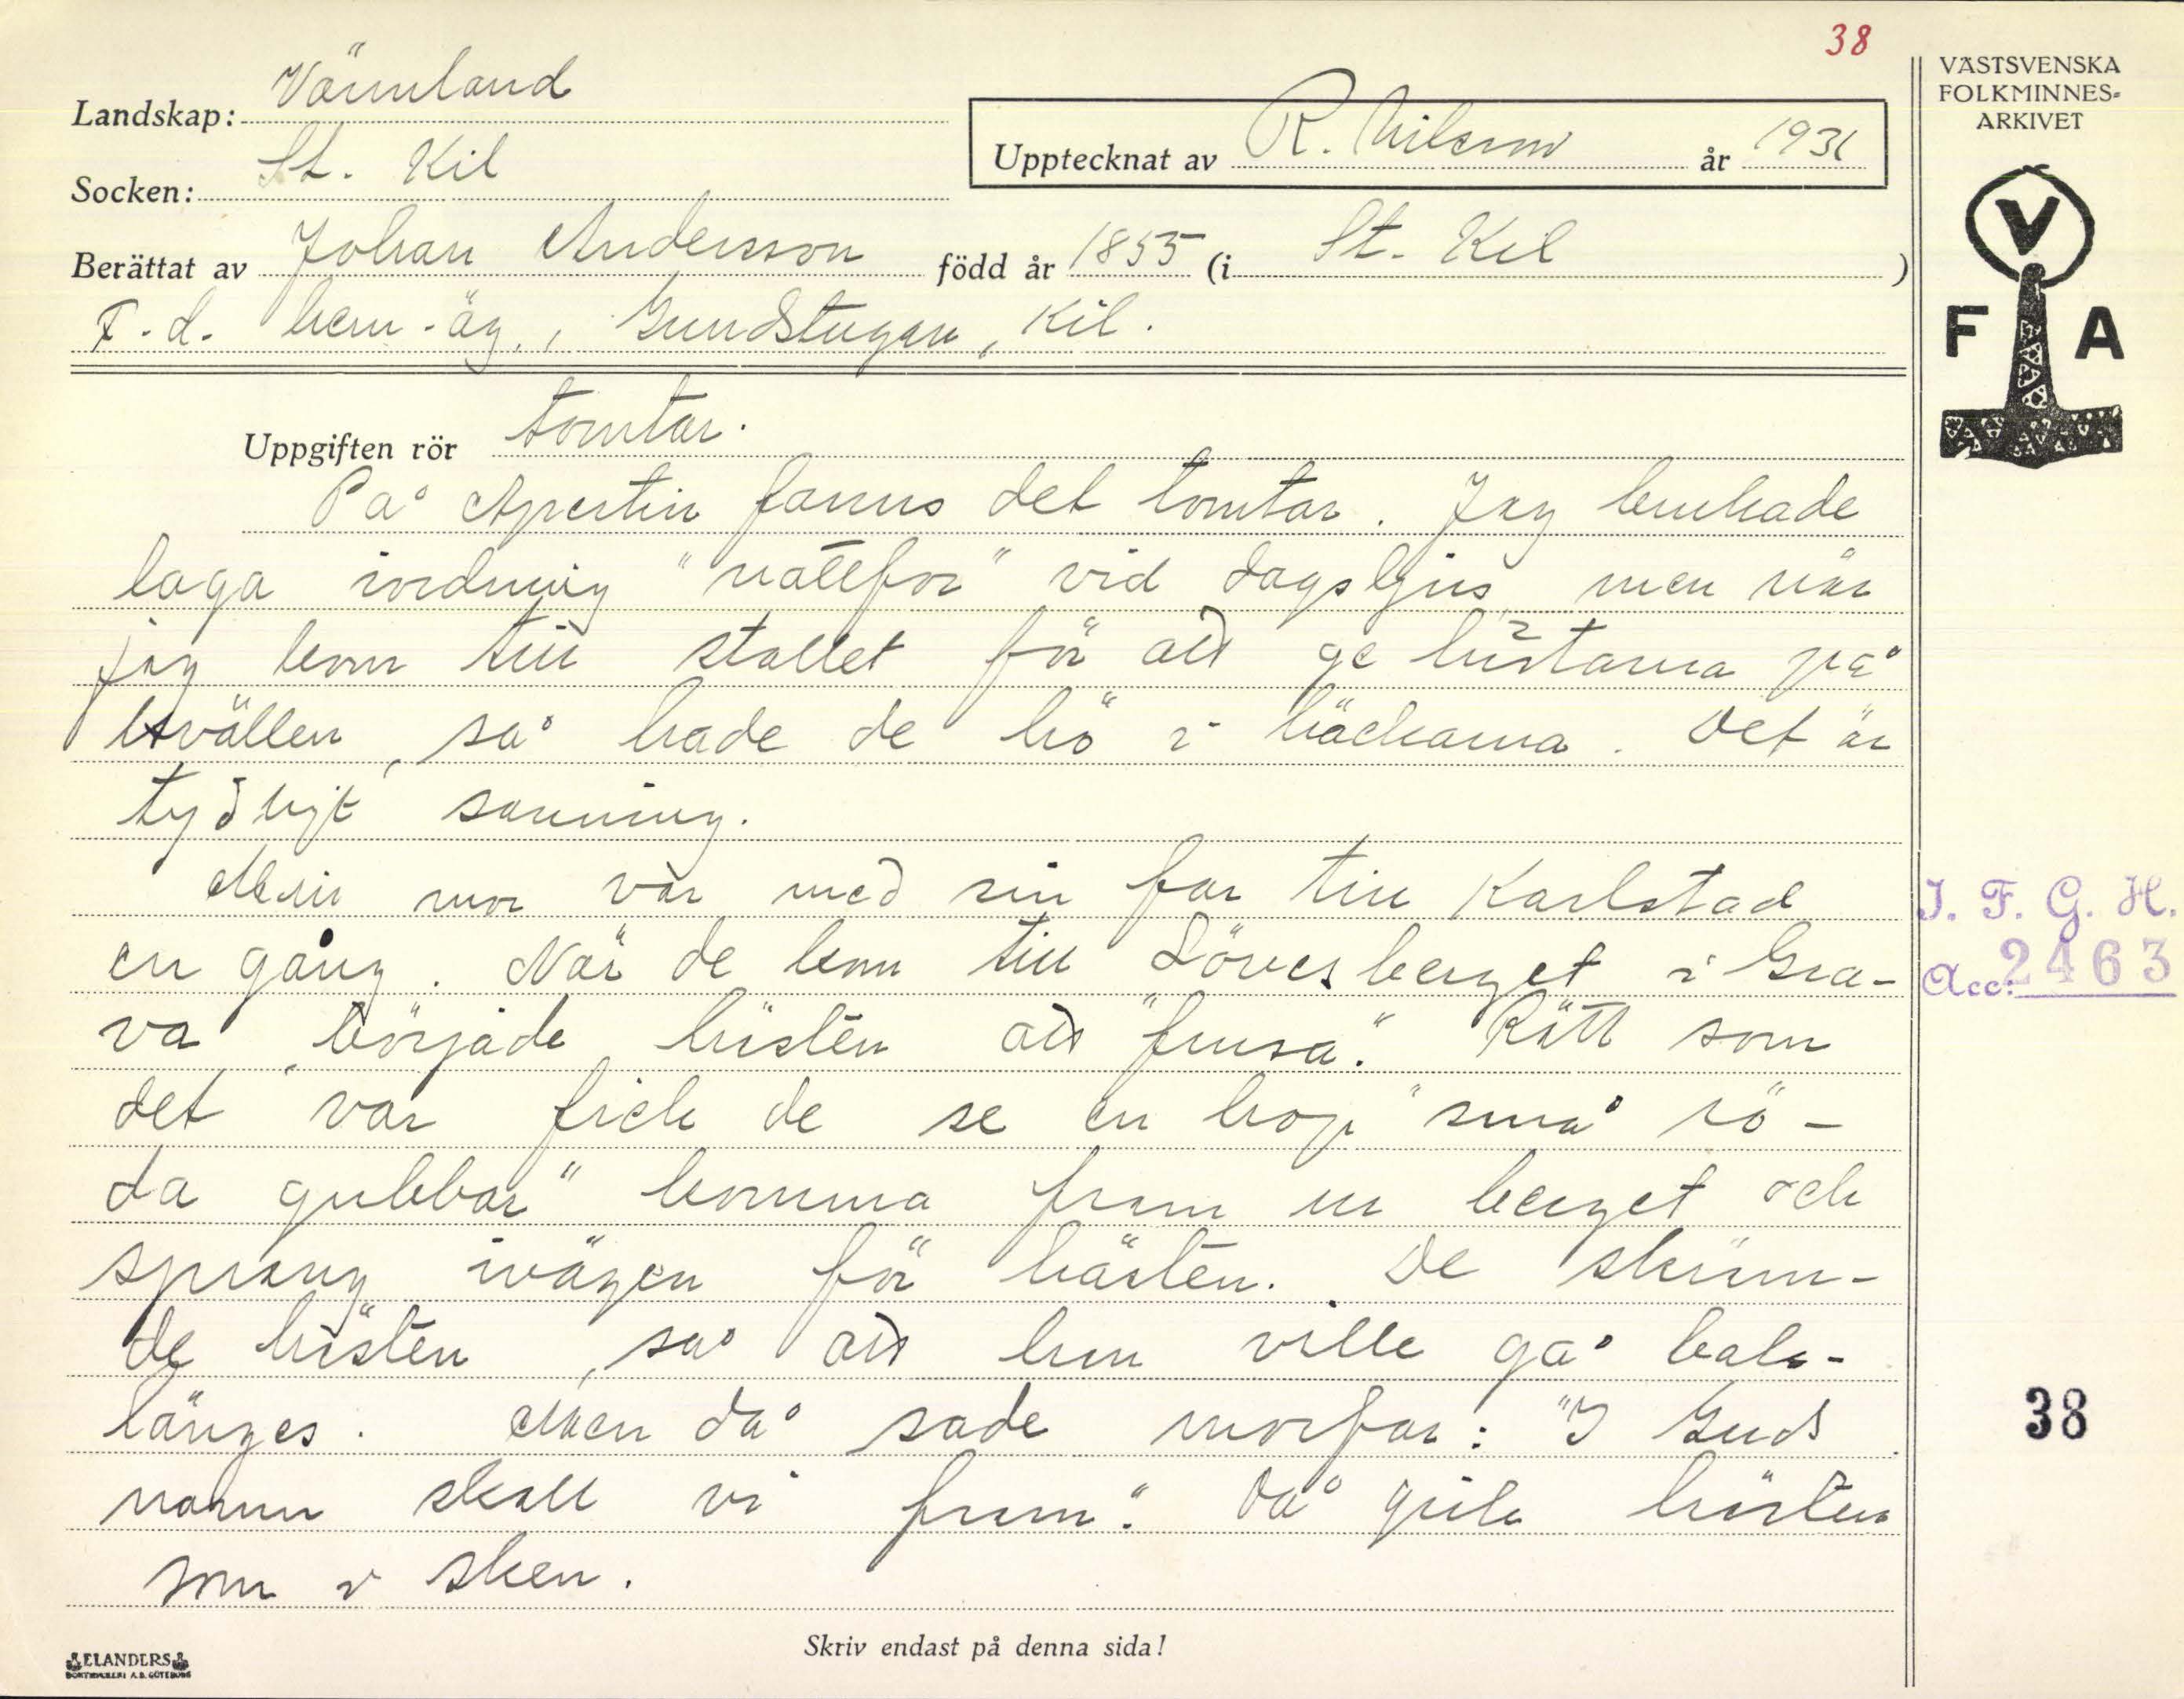 38
VÄSTSVENSKA
FOLKMINNES-
ARKIVET
Landskap: Värmland
Upptecknat av R. Nilsson år 1931
Socken: St. Kil
Berättat av Johan Andersson född år 1855 (i St. Kil)
F.d. hem.äg., Grundstugan, Kil.
V
F A
Uppgiften rör tomtar.
På Apertin fanns det tomtar. Jag brukade
laga iordning "nattfor" vid dagsljus, men när
jag kom till stallet för att ge hästarna på
kvällen, så hade de hö i häckarna. Det är
tydligt sanning.
Min mor var med sin far till Karlstad
en gång. När de kom till Lövesberget i Gra-
va började hästen att "frusa". Rätt som
det var fick de se en hop "små rö-
da gubbar" komma fram ur berget och
sprang ivägen för hästen. De skräm-
de hästen, så att hon ville gå bak-
länges. Men då sade morfar: "I Guds
namn skall vi fram". Då gick hästen
som i sken.
I. F. G. H.
Acc: 2463
38
Skriv endast på denna sida!
ELANDERS
BOKTRYCKERI A.B. GÖTEBORG